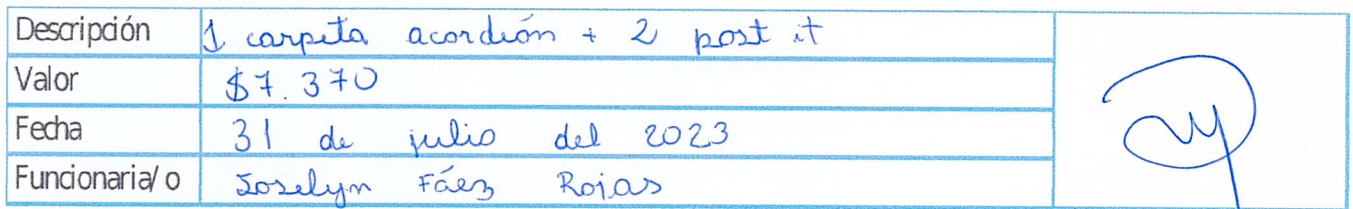 Descripción 1 carpeta acordión + 2 post it
Valor $7.370
Fecha 31 de julio del 2023
Funcionaria/o Joselyn Fáez Rojas